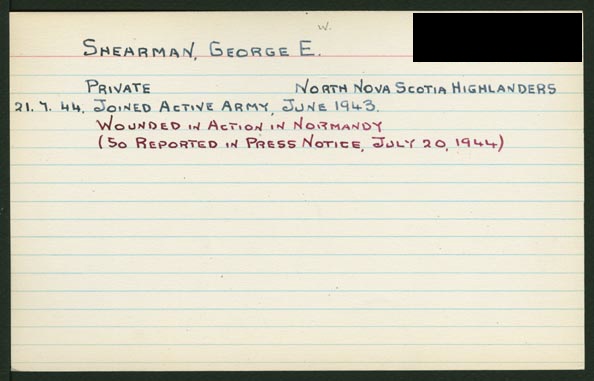 W.
SHEARMAN, GEORGE E.
PRIVATE NORTH NOVA SCOTIA HIGHLANDERS
21. 7. 44. JOINED ACTIVE ARMY, JUNE 1943.
WOUNDED IN ACTION IN NORMANDY
(SO REPORTED IN PRESS NOTICE, JULY 20, 1944)